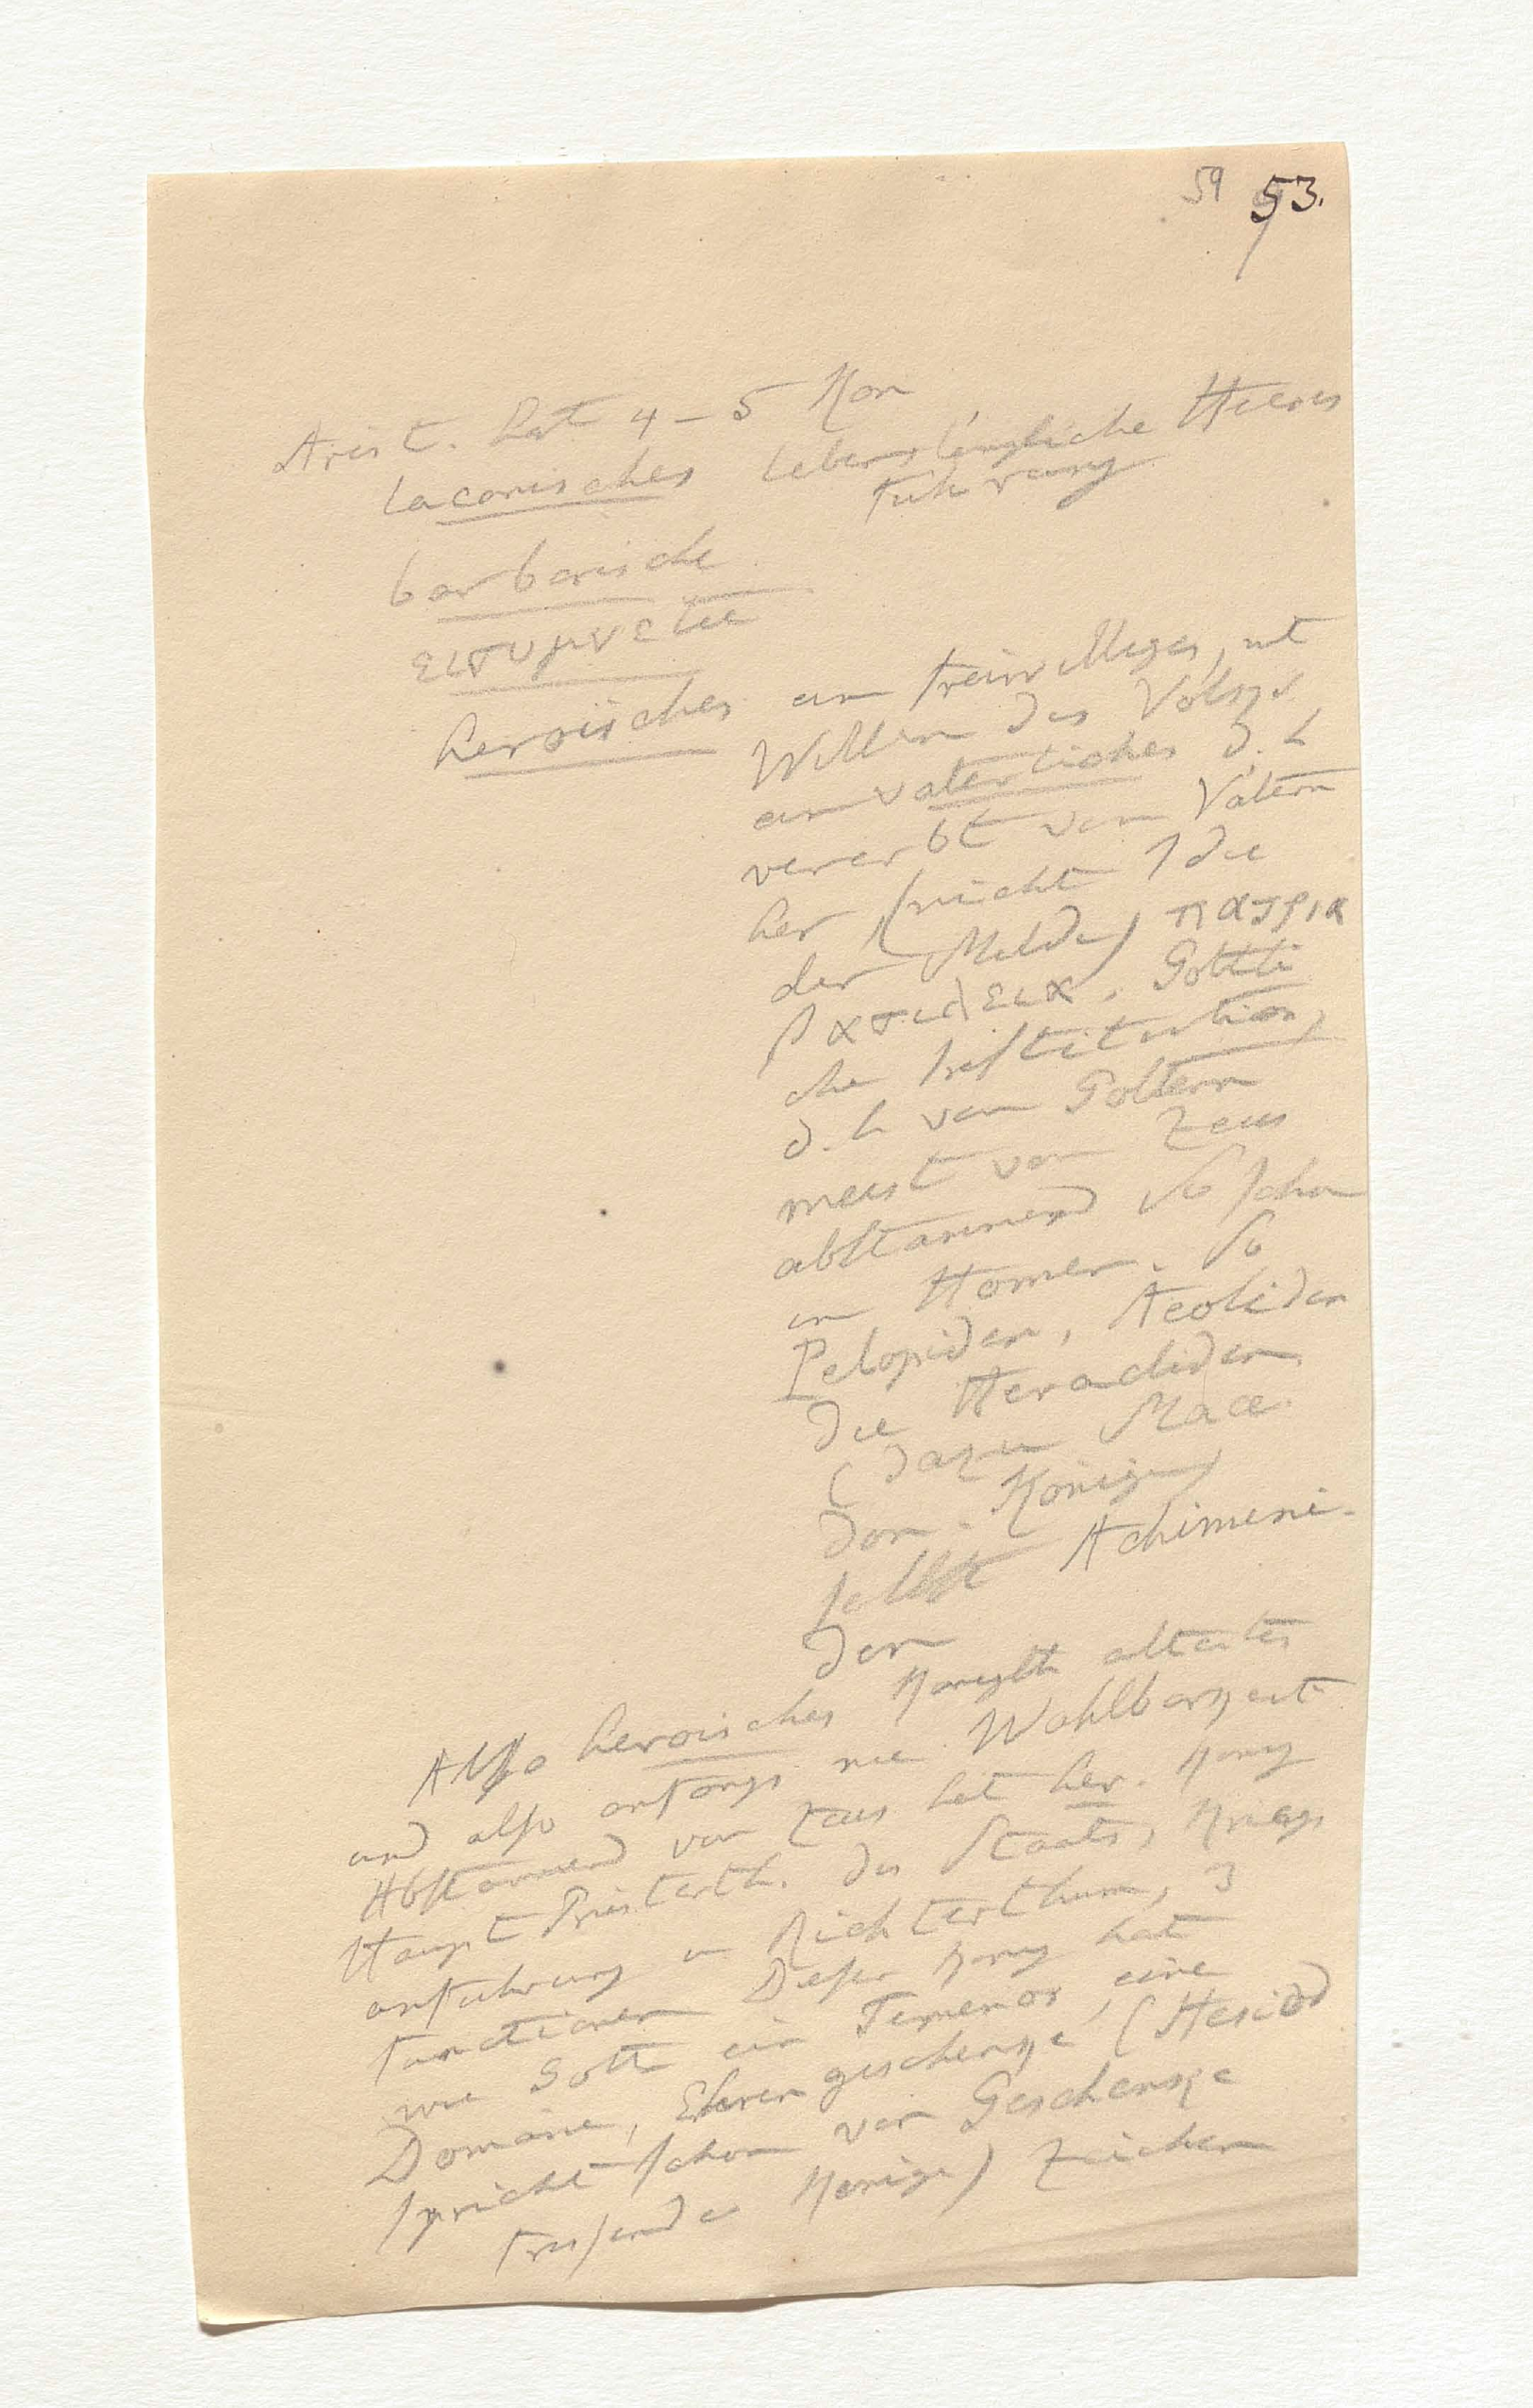 59 53.
Arist. hat 4 – 5 Kon
laconisches lebenslängliche Heeres
führung
barbarische
heroisches ein freiwilliges, mt
Willen des Volks
ein vaterliches d. h
vererbt von Vätern
her (nicht die
der Milde) πατρια
βασιλεια. Gottli
che Institution,
d. h von Göttern
meist von Zeus
abstammend so schon
im Homer. So
Pelopiden, Aeoliden
die Heracliden
(dazu Mace
don. Könige)
selbst Achimeni-
den
Also heroisches Konigth altestes
und also anfangs nie Wahlbarkeit
Abstammend von Zeus hat her. Konig
Haupt Priesterth. des Staats, Kriegs
anfuhrung u Richterthum, 3
functionen Dieser Konig hat
wie Gott ein Temenos, eine
Domäne, Ehrengeschenke (Hesiod
spricht schon von Geschenke
fressende Konige) Zeichen